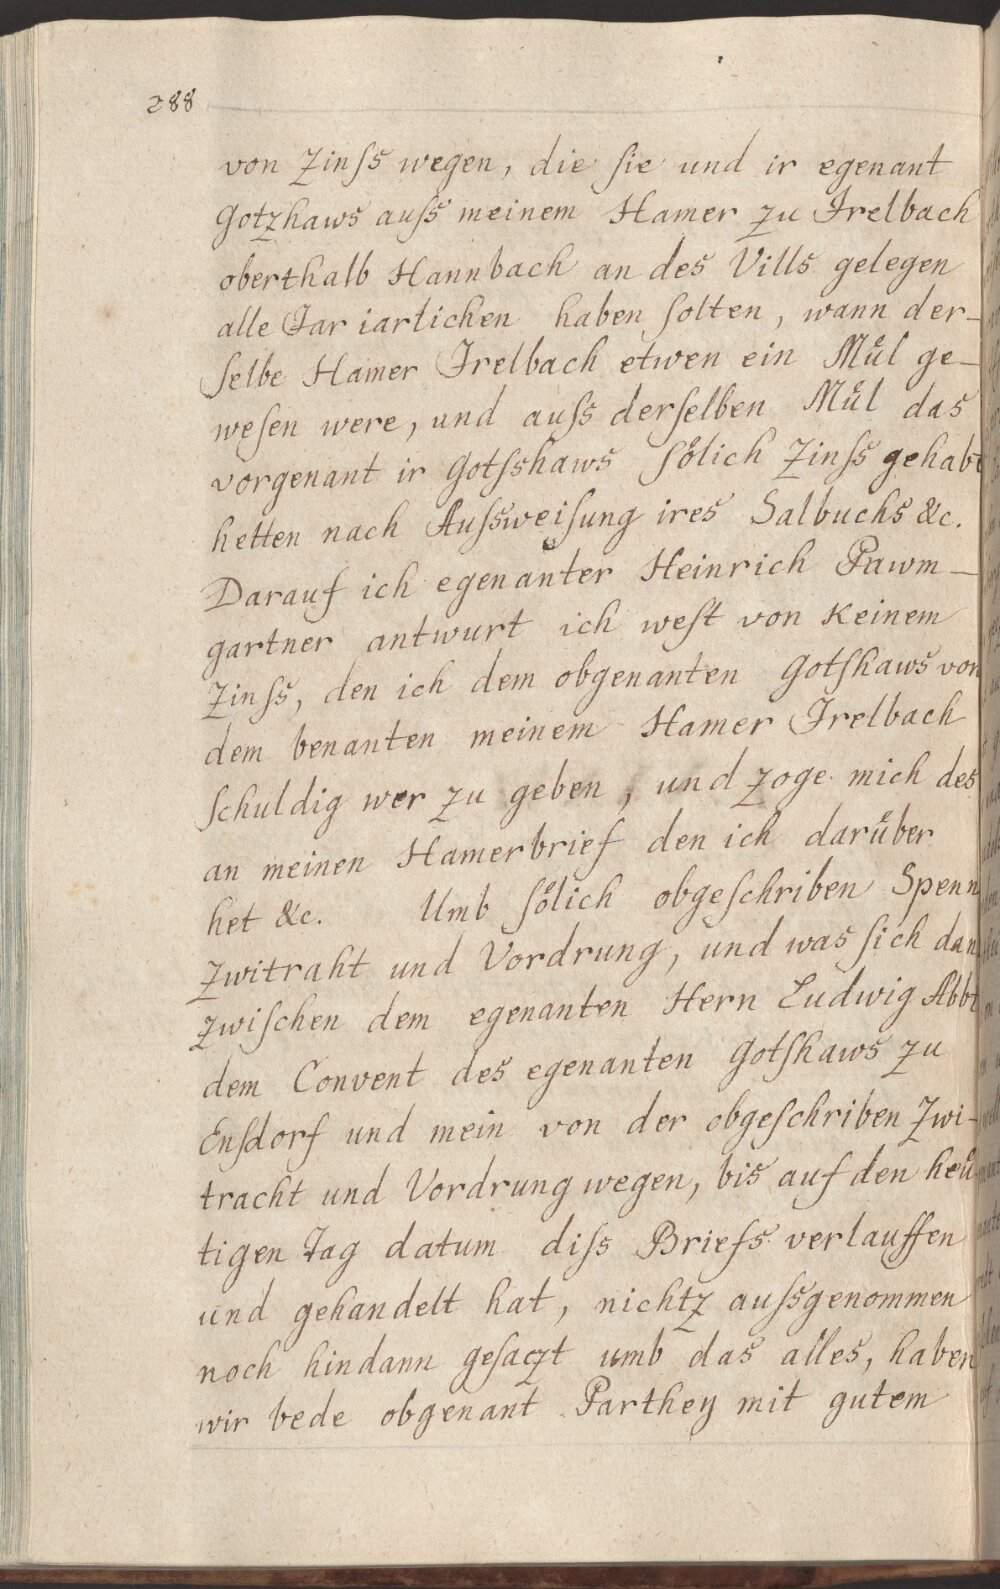 288
von Zinſs wegen, die ſie und ir egenant
Gotzhaws auſs meinem Hamer zu Irelbach
oberthalb Hannbach an des Vills gelegen
alle Jar iarlichen haben ſolten, wann der-
ſelbe Hamer Irelbach etwen ein Můl ge-
weſen were, und auſs derſelben Můl das
vorgenant ir Gotſshaws ſölich Zinſs gehabt
hetten nach Auſsweiſung ires Salbuchs &c.
Darauf ich egenanter Heinrich Pawm-
gartner antwurt ich weſt von keinem
Zinſs, den ich dem obgenanten Gotſhaws von
dem benanten meinem Hamer Irelbach
ſchuldig wer zu geben, und zoge mich des
an meinen Hamerbrief den ich darůber
het &c. Umb ſölich obgeſchriben Spenn
Zwitraht und Vordrung, und was ſich dan
zwiſchen dem egenanten Hern Ludwig Abbt
dem Convent des egenanten Gotſhaws zu
Enſdorf und mein von der obgeſchriben Zwi-
tracht und Vordrung wegen, bis auf den heů
tigen Tag datum diſs Briefs verlauffen
und gehandelt hat, nichtz auſsgenommen
noch hindann geſaczt umb das alles, haben
wir bede obgenant Parthey mit gutem